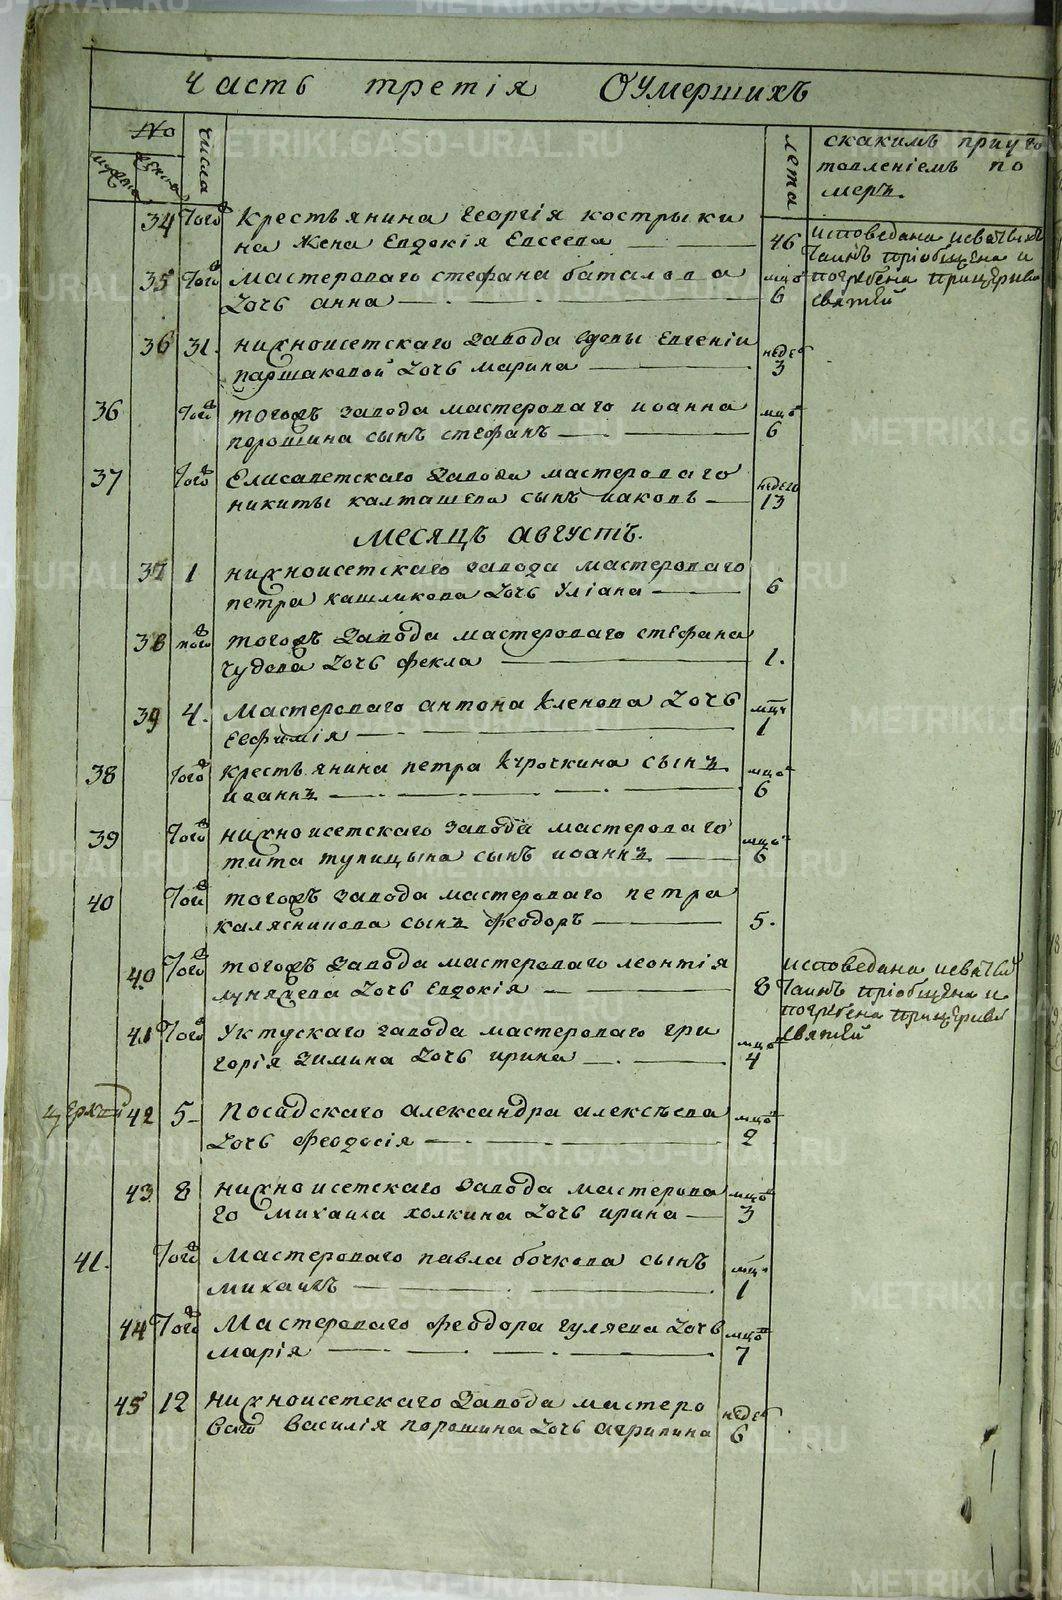 Часть третія О Умершихъ
No
числа
лета
скакимъ приуго
товленіемъ по
меръ.
мужеска
женска
34 Того Крестьянина Георгія Кострыки
на Жена Евдокія Евсеева 46
исповедана исвятыхъ
Таинъ пріобщена и
погребена прицеркви
святей
35 Того Мастероваго стефана баталова
Дочь анна мцов 6
36 31. нижноисетскаго завода вдовы Евгеніи
паршаковой Дочь марина недел 3
36 Того тогожъ завода мастероваго иоанна
порошина сынъ стефанъ мцов 6
37 Того Елисаветскаго завода мастероваго
никиты калташева сынъ иаковъ недель 13
месяцъ августъ.
37 1 нижноисетскаго завода мастероваго
петра кашликова Дочь уліана 6
38 того тогожъ завода мастероваго стефана
чудова Дочь фекла 1.
39 4. Мастероваго антона Кленова Дочь
Евфимія мцъ 1
38 Того крестьянина петра Курочкина сынъ
иоаннъ мцов 6
39 Того нижноисетскаго завода мастероваго
тита тупицына сынъ иоаннъ мцов 6
40 Того тогожъ завода мастероваго петра
калясникова сынъ феодоръ 5.
40 Того тогожъ завода мастероваго леонтія
луняцева Дочь Евдокія 8
исповедана исвятей
Таинъ пріобщена и
погребена прицеркви
святей
41 Того Уктускаго завода мастероваго гри
горія зимина Дочь ирина мцов 4
42 5 Посадскаго александра алексеева
Дочь феодосія мцов 2
43 8 нижноисетскаго завода мастерова
го михаила холкина Дочь ирина мцов 3
41. Того Мастероваго павла бочкова сынъ
михаилъ мцъ 1
44 Того Мастероваго феодора гуляева Дочь
марія мцов 7
45 12 нижноисетскаго завода мастеро
ваго василія порошина Дочь агрипина недел 6
METRIKI.GASO-URAL.RU